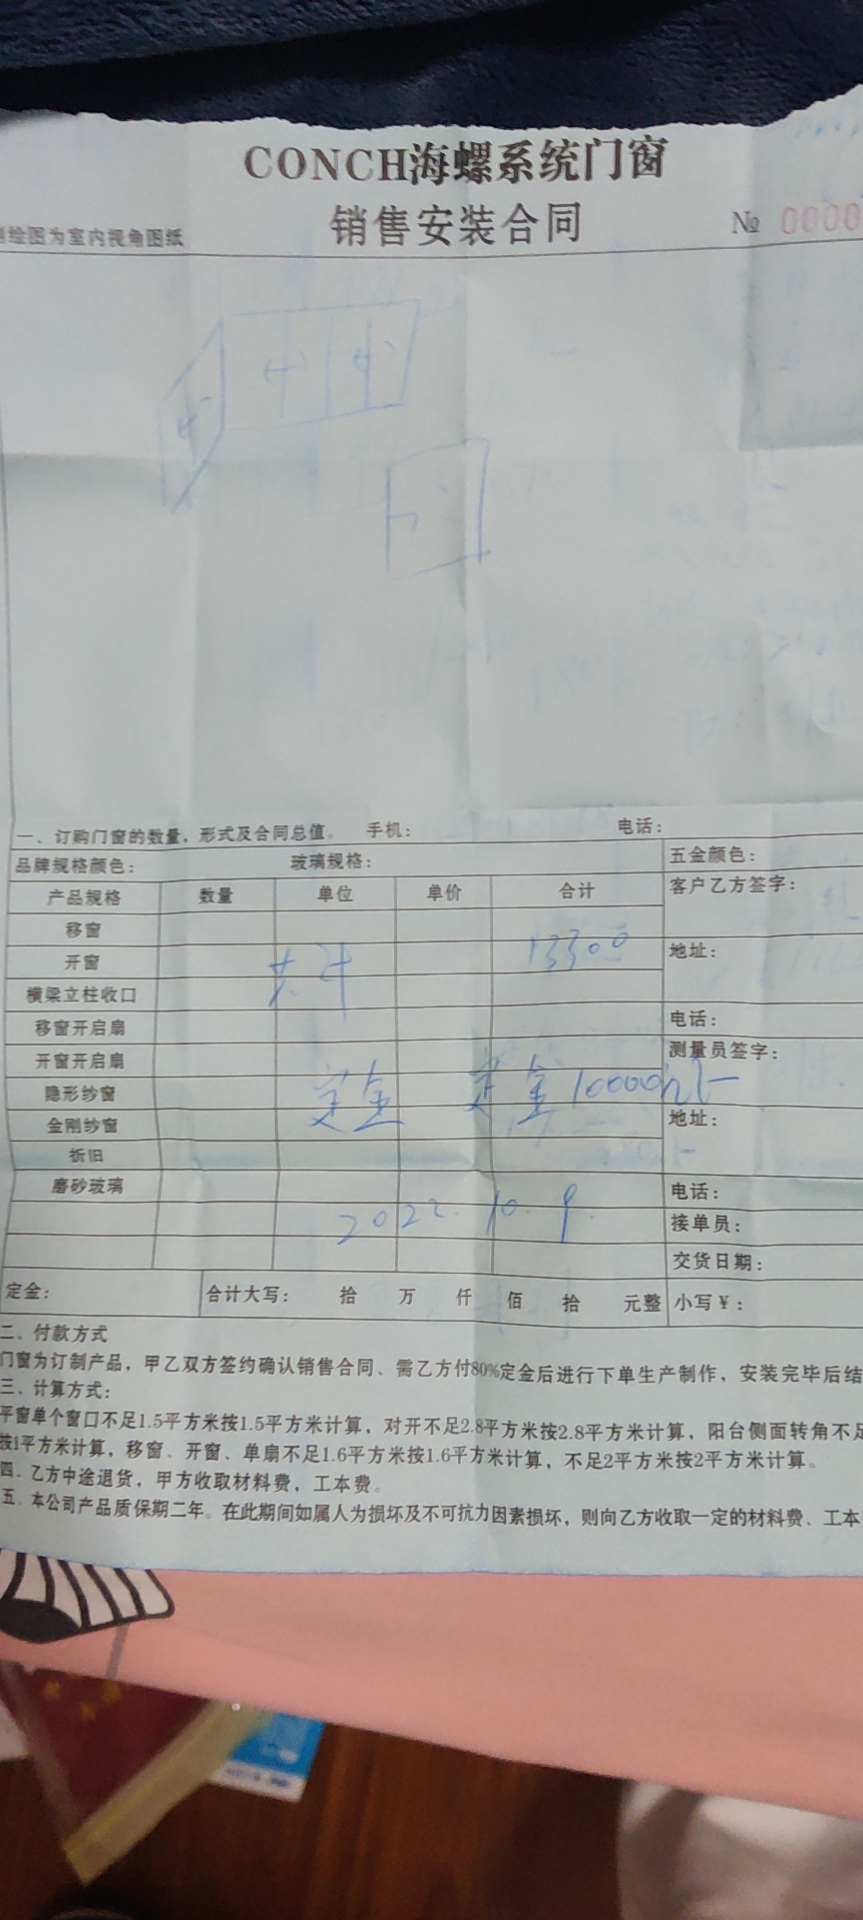 CONCH海螺系统门窗
销售安装合同
绘图为室内视角图纸
№ 0000
一、订购门窗的数量，形式及合同总值。 手机： 电话：
品牌规格颜色： 玻璃规格： 五金颜色：
产品规格 数量 单位 单价 合计 客户乙方签字：
移窗
开窗 共计 13300 地址：
横梁立柱收口
移窗开启扇 电话：
开窗开启扇 测量员签字：
隐形纱窗 定金 定金10000
金刚纱窗 地址：
折旧
磨砂玻璃 电话：
2022.10.9. 接单员：
交货日期：
定金： 合计大写： 拾 万 仟 佰 拾 元整 小写￥：
二、付款方式
门窗为订制产品，甲乙双方签约确认销售合同、需乙方付80%定金后进行下单生产制作，安装完毕后结
三、计算方式：
平窗单个窗口不足1.5平方米按1.5平方米计算，对开不足2.8平方米按2.8平方米计算，阳台侧面转角不足
按1平方米计算，移窗、开窗、单扇不足1.6平方米按1.6平方米计算，不足2平方米按2平方米计算。
四、乙方中途退货，甲方收取材料费，工本费。
五、本公司产品质保期二年。在此期间如属人为损坏及不可抗力因素损坏，则向乙方收取一定的材料费、工本